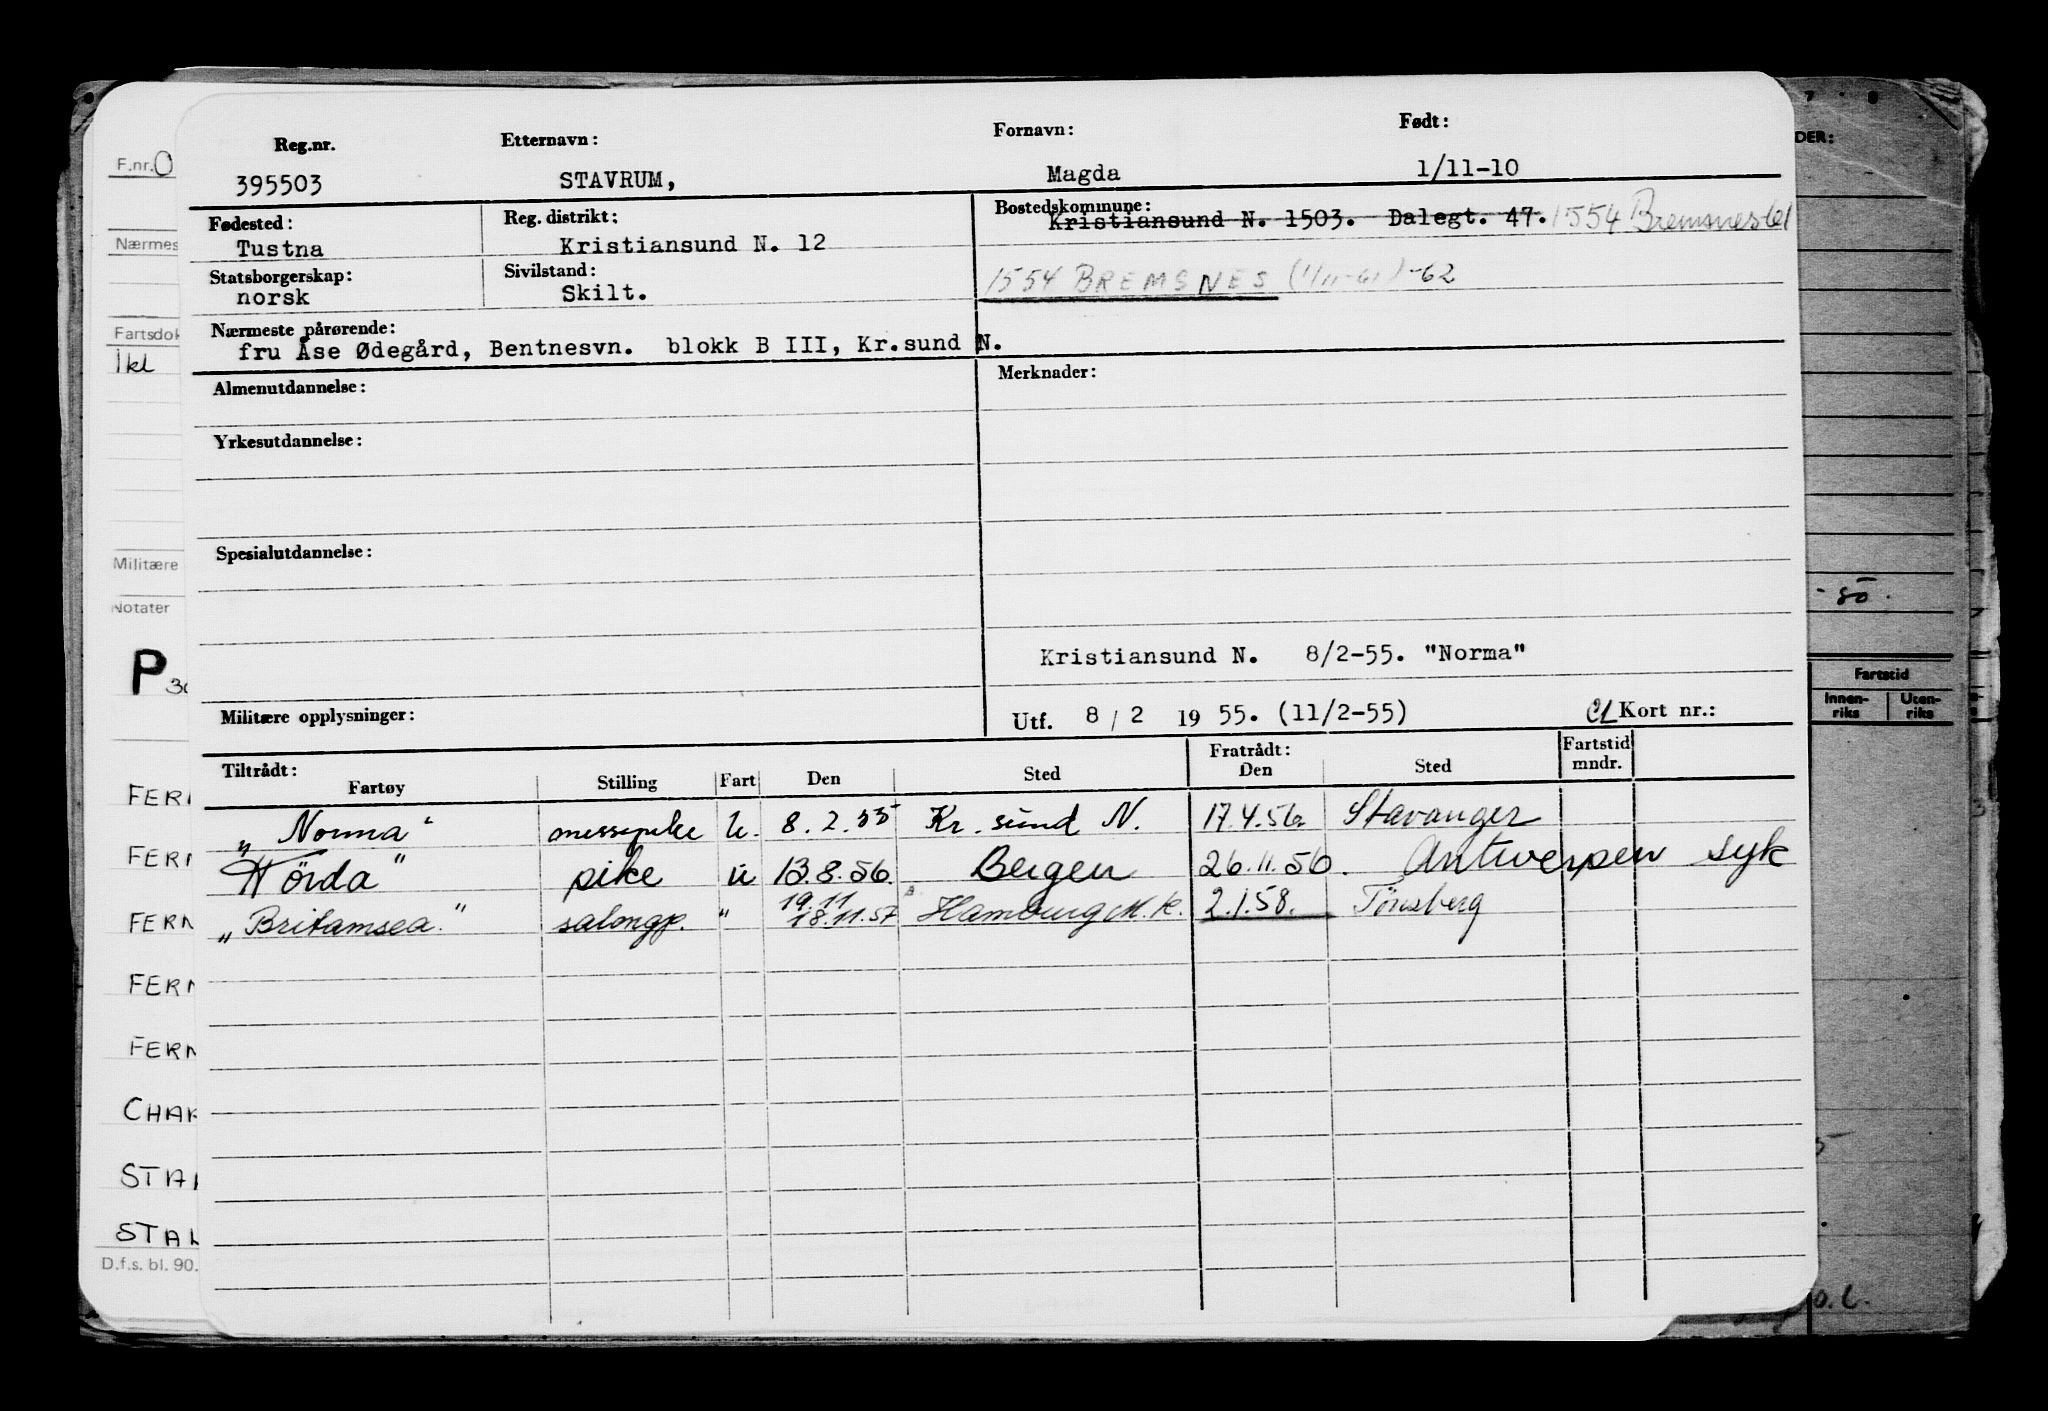 Reg.nr. Etternavn: Fornavn: Født:
395503 STAVRUM, Magda 1/11-10
Fødested: Reg. distrikt: Bostedskommune:
Tustna Kristiansund N. 12 Kristiansund N. 1503. Dalegt. 47. 1554 Bremsnes
Statsborgerskap: Sivilstand:
norsk Skilt. 1554 BREMSNES (1/11-61) -62
Nærmeste pårørende:
fru Åse Ødegård, Bentnesvn. blokk B III, Kr.sund N.
Almenutdannelse: Merknader:
Yrkesutdannelse:
Spesialutdannelse:
Kristiansund N. 8/2-55. "Norma"
Militære opplysninger: Utf. 8/2 1955. (11/2-55) Kort nr.:
Tiltrådt: Fratrådt: Fartstid
Fartøy Stilling Fart Den Sted Den Sted mndr.
„Norma" messepike u. 8.2.55 Kr. sund N. 17.4.56 Stavanger
Hörda" pike u 13.8.56. Bergen 26.11.56. Antwerpen syk
19.11
„Britamsea." salongp. " 18.11.57 Hamburg M.k. 2.1.58. Tönsberg
F.nr. 0
Nærmes
Fartsdok
1kl
Militære
Notater
P
FERN
FERN
FERN
FERN
FERN
CHAR
STA
STAL
D.f.s. bl. 90.
DER:
-50.
Fartstid
Innen-riks Uten-riks